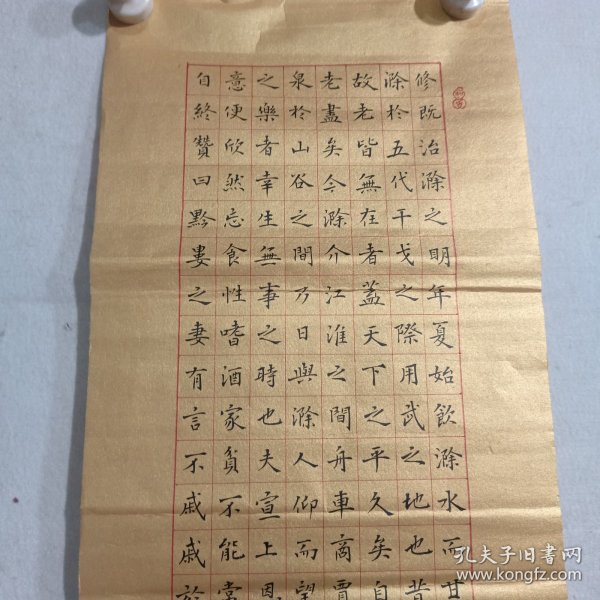 修既治滁之明年夏始飲滁水而甘
滁於五代干戈之際用武之地也昔
故老皆無在者蓋天下之平久矣自
老盡矣今滁介江淮之間舟車商賈
泉於山谷之間乃日與滁人仰而望
之樂者幸生無事之時也夫宣上恩
意便欣然忘食性嗜酒家貧不能常
自終贊曰黔婁之妻有言不戚戚於
孔夫子旧书网
www.kongfz.com